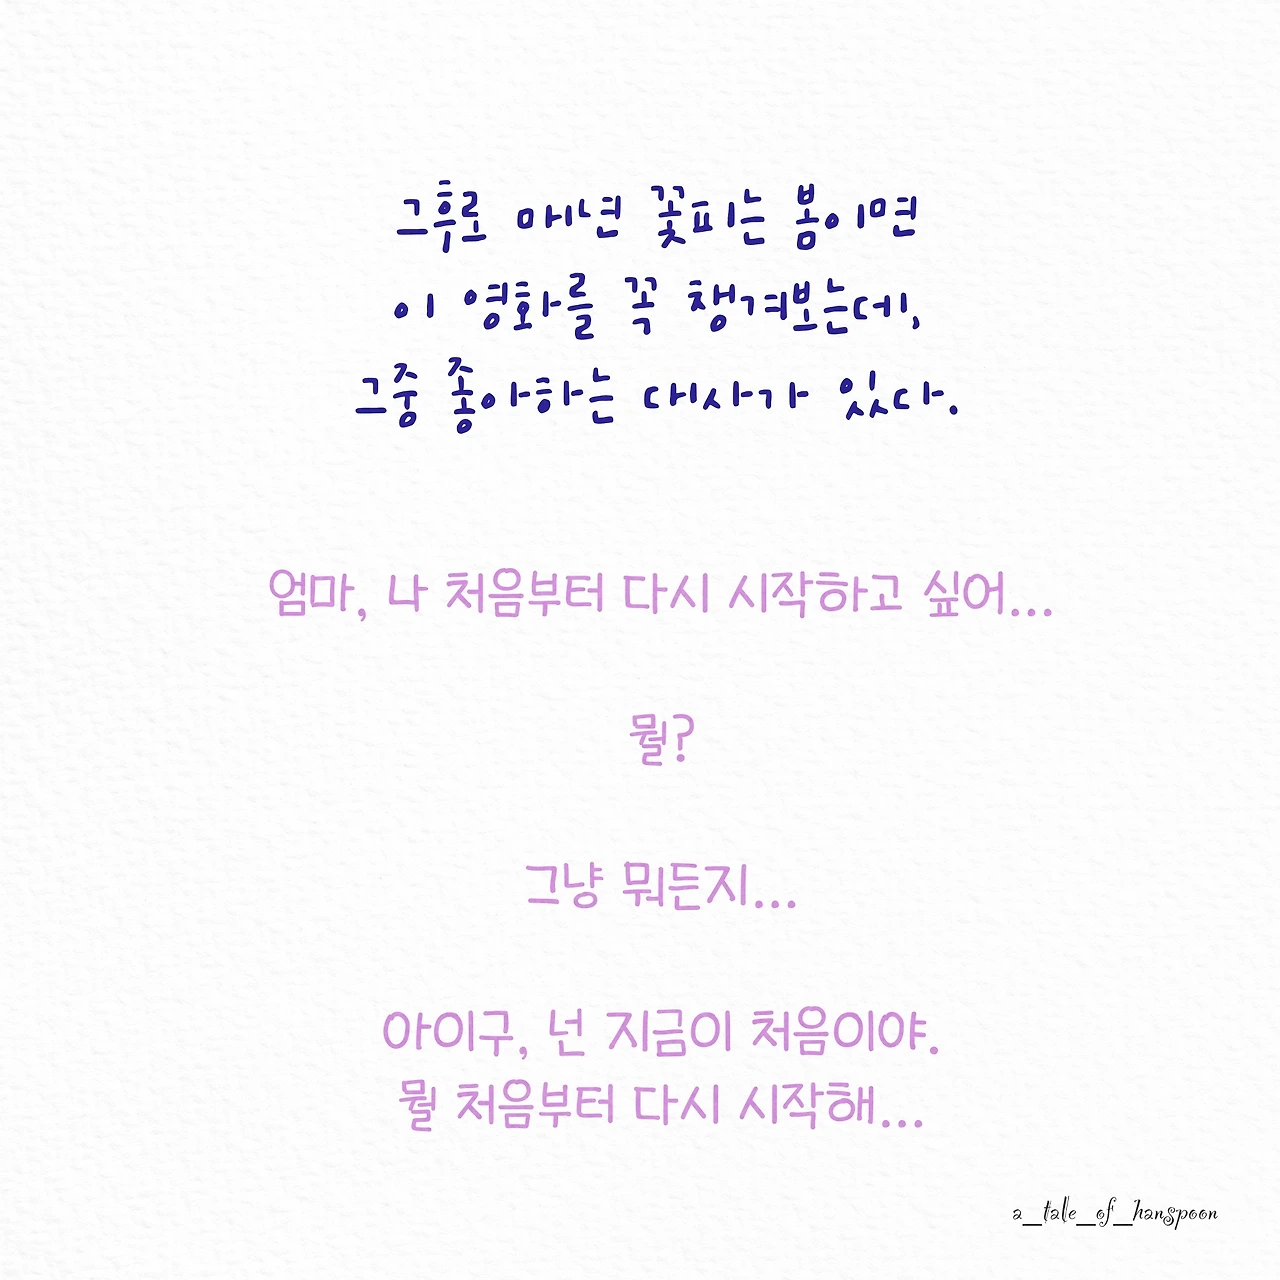 그후로 매년 꽃피는 봄이면
이 영화를 꼭 챙겨보는데,
그중 좋아하는 대사가 있다.
엄마, 나 처음부터 다시 시작하고 싶어...
뭘?
그냥 뭐든지...
아이구, 넌 지금이 처음이야.
뭘 처음부터 다시 시작해...
a_tale_of_hanspoon